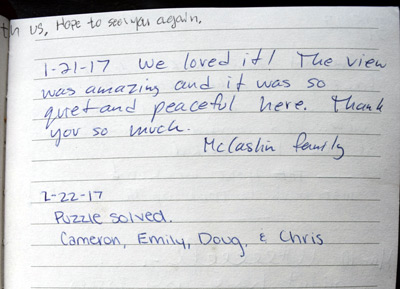 th us. Hope to see you again.
1-21-17 We loved it! The view
was amazing and it was so
quiet and peaceful here. Thank
you so much.
McCaslin family
2-22-17
Puzzle solved.
Cameron, Emily, Doug, & Chris